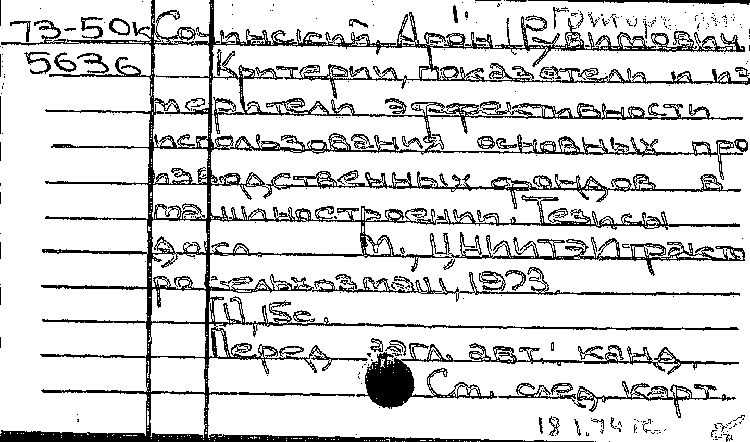 73-50к Сочинский, Арон Рувимович
5636 Критерии, показатели и из
мерители эффективности
использования основных про
изводственных фондов в
машиностроении. Тезисы
докл. М., ЦНИИТЭИтракто
росельхозмаш, 1973.
III, 15с.
Перед загл. авт.: канд.
См. след. карт.
18 1.74